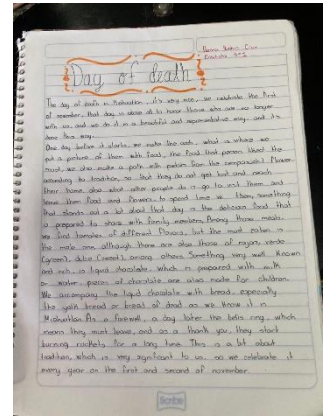 Day of death
The day of death in Michoacan, it's very nice, we celebrate the first
of november, that day is about all to honor those who are no longer
with us, and we do it in a beautiful and representative way, and it's
done this way.
One day before it starts, we make the , what is where we
put a picture of them with food, the food that person liked the
most, we also make a path with petals from the cempasuchil flower
according to tradition, so that they do not get lost and reach
their home, also what other people do is go to visit them and
leave them food and flowers, to spend time . Idem, something
that stands out a lot about that day is the delicious food that
is prepared to share with family members. Among those meals
we find tamales of different flavors, but the most eaten is
the mole one, although there are also those of rajas, verde
(green), dulce (sweet), among others. Something very well known
and rich is liquid chocolate, which is prepared with milk
or water, pieces of chocolate are also made for children.
We accompany the liquid chocolate with bread, especially
the with bread or bread of dead as we know it in
Michoacan. As a farewell, a day later the bells ring, which
means they must leave, and as a thank you, they start
burning rockets for a long time. This is a bit about
tradition, which is very significant to us, so we celebrate it
every year on the first and second of november.
Scribe